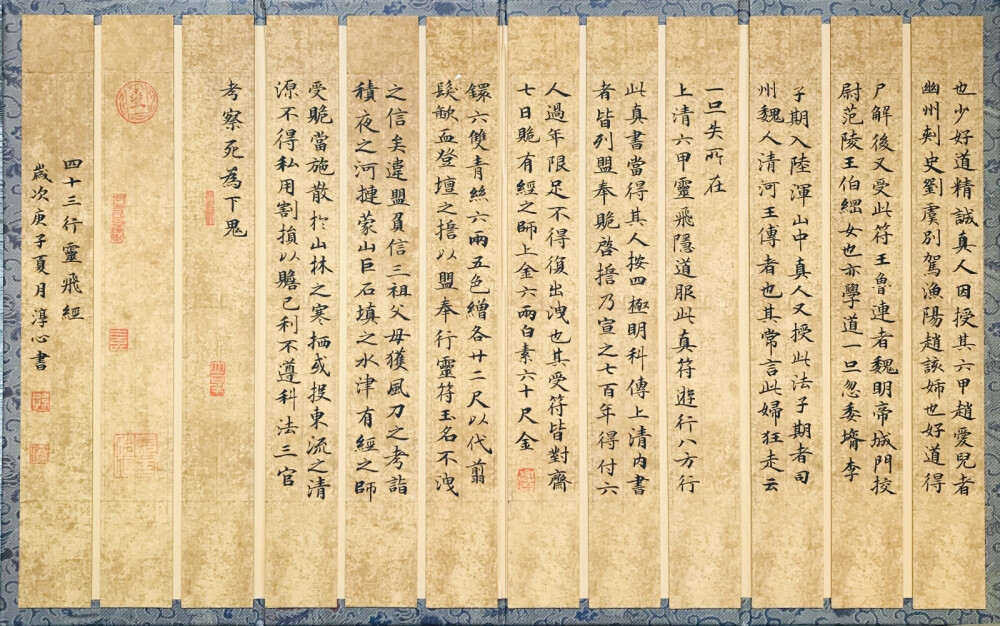 也少好道精誠真人因授其六甲趙愛兒者
幽州刾史劉虞別駕漁陽趙該姉也好道得
尸解後又受此符王魯連者魏明帝城門挍
尉范陵王伯綱女也亦學道一旦忽委壻李
子期入陸渾山中真人又授此法子期者司
州魏人清河王傳者也其常言此婦狂走云
一旦失所在
上清六甲靈飛隱道服此真符遊行八方行
此真書當得其人按四極明科傳上清內書
者皆列盟奉賜啓擔乃宣之七百年得付六
人過年限足不得復出洩也其受符皆對齋
七日賜有經之師上金六兩白素六十尺金
鐶六雙青絲六兩五色繒各廿二尺以代翦
髮歃血登壇之擔以盟奉行靈符玉名不洩
之信矣違盟負信三祖父母獲風刀之考詣
積夜之河揵蒙山巨石填之水津有經之師
受賜當施散於山林之寒栖或投東流之清
源不得私用割損以贍己利不遵科法三官
考察死為下鬼
四十三行靈飛經
歲次庚子夏月淳心書